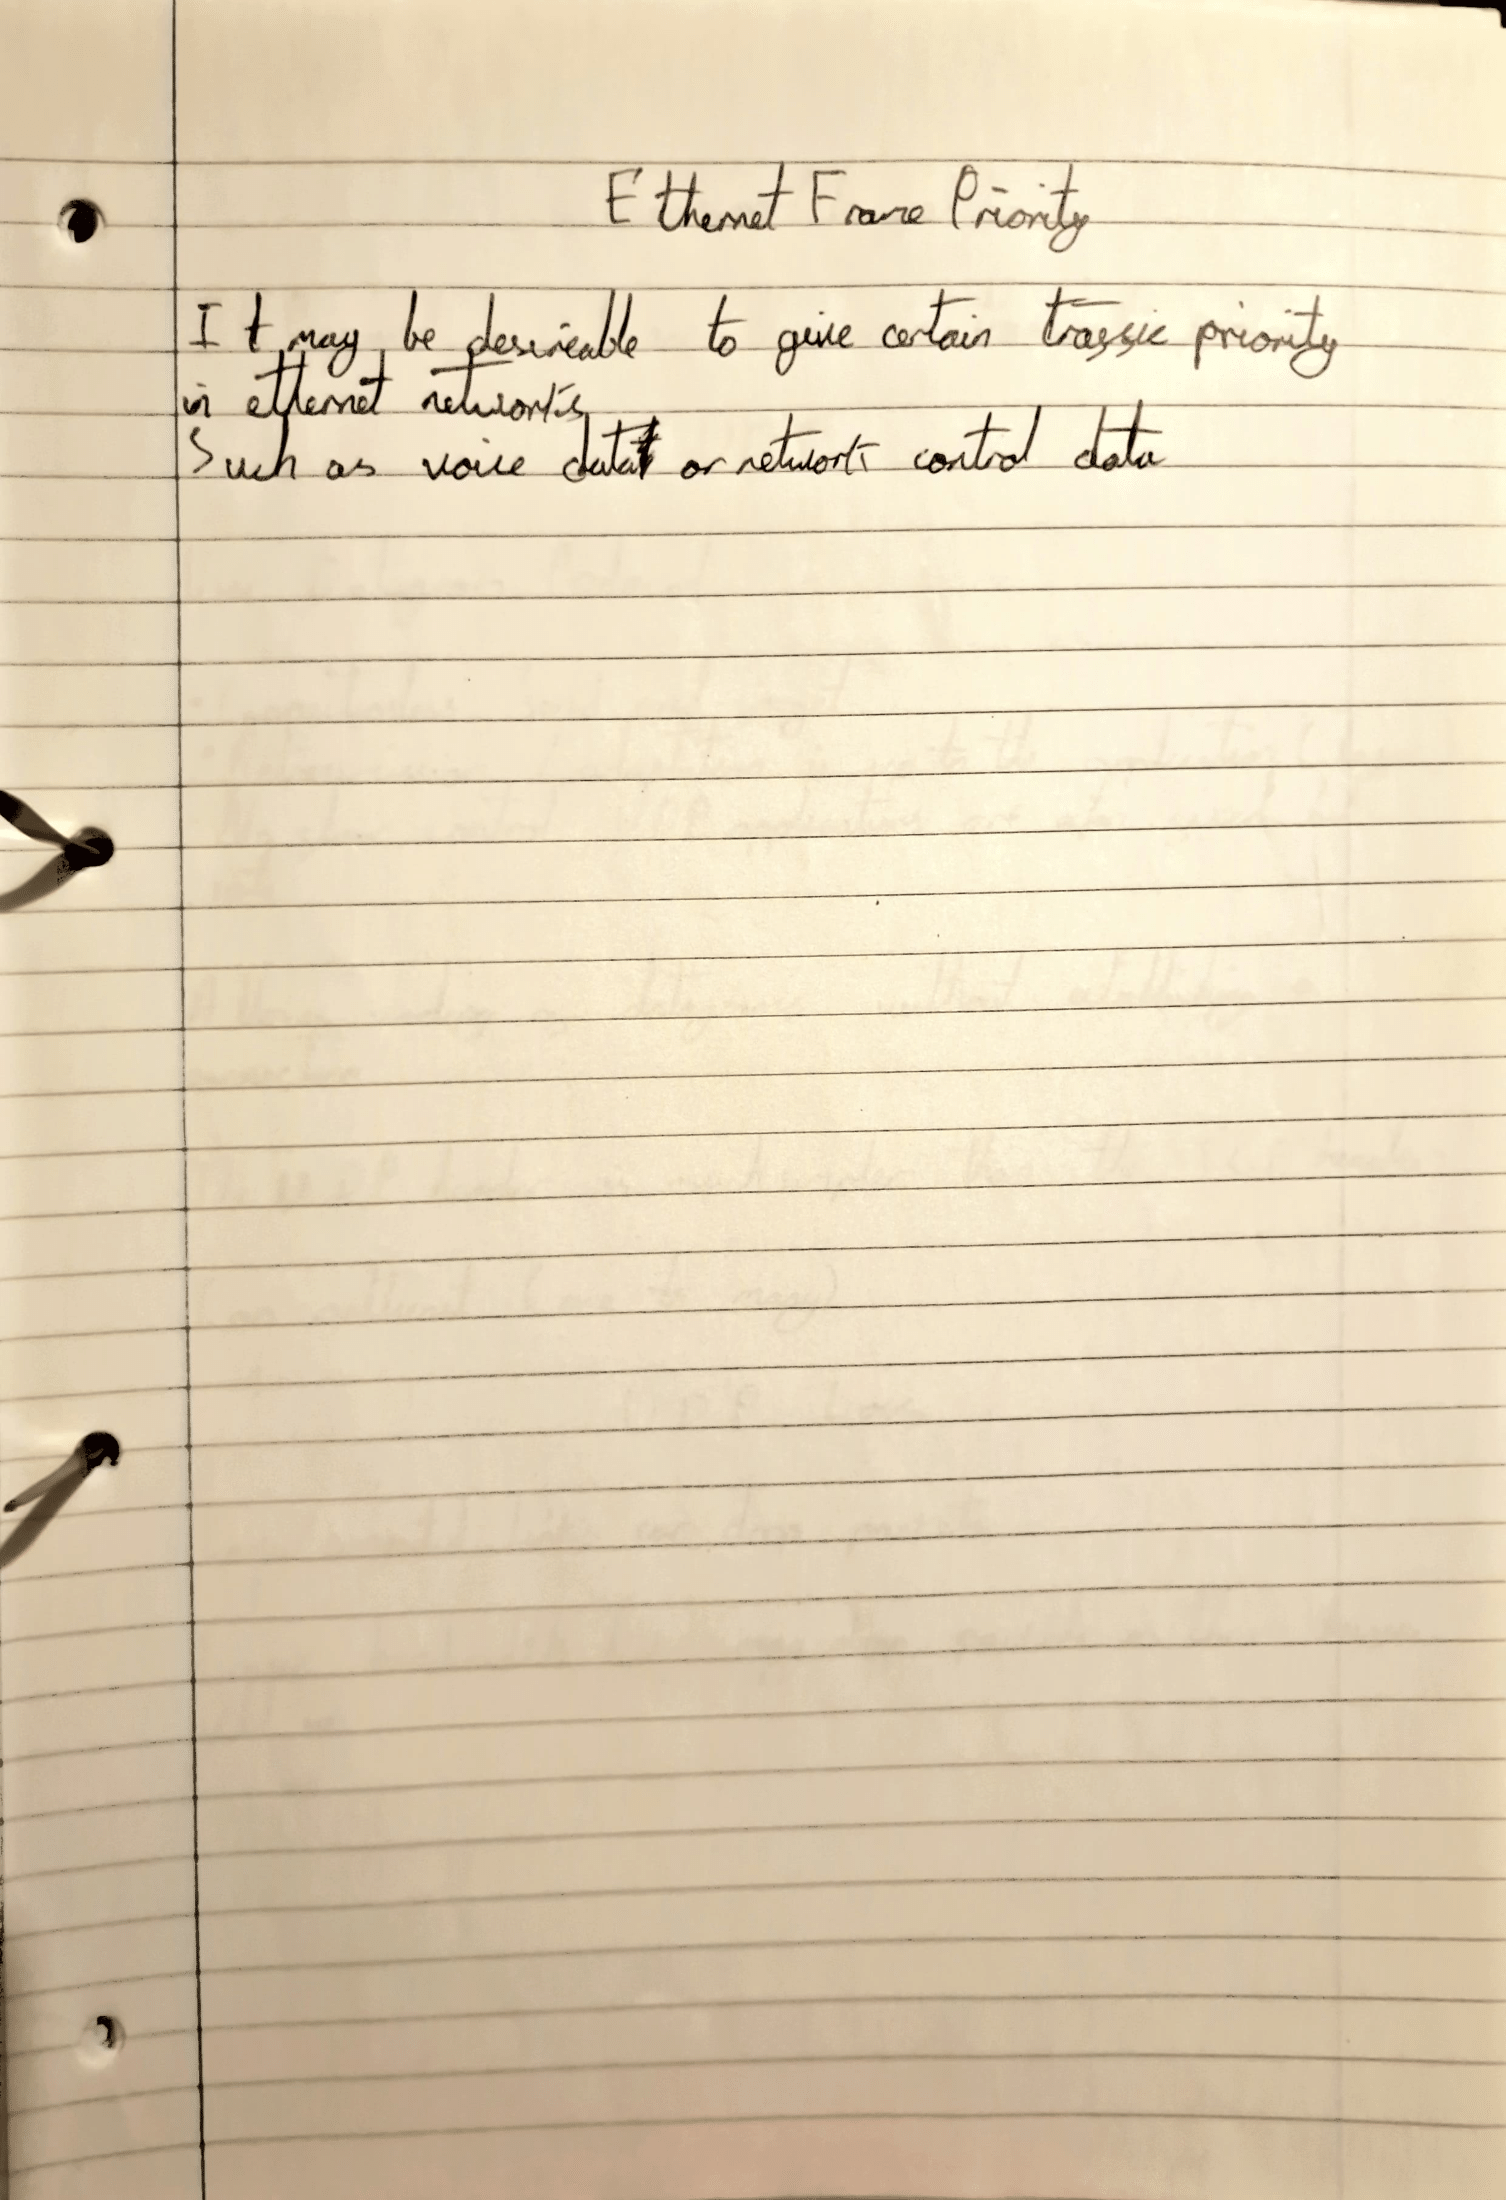 Ethernet Frame Priority
It may be desireable to give certain traffic priority
in ethernet networks
Such as voice data or network control data